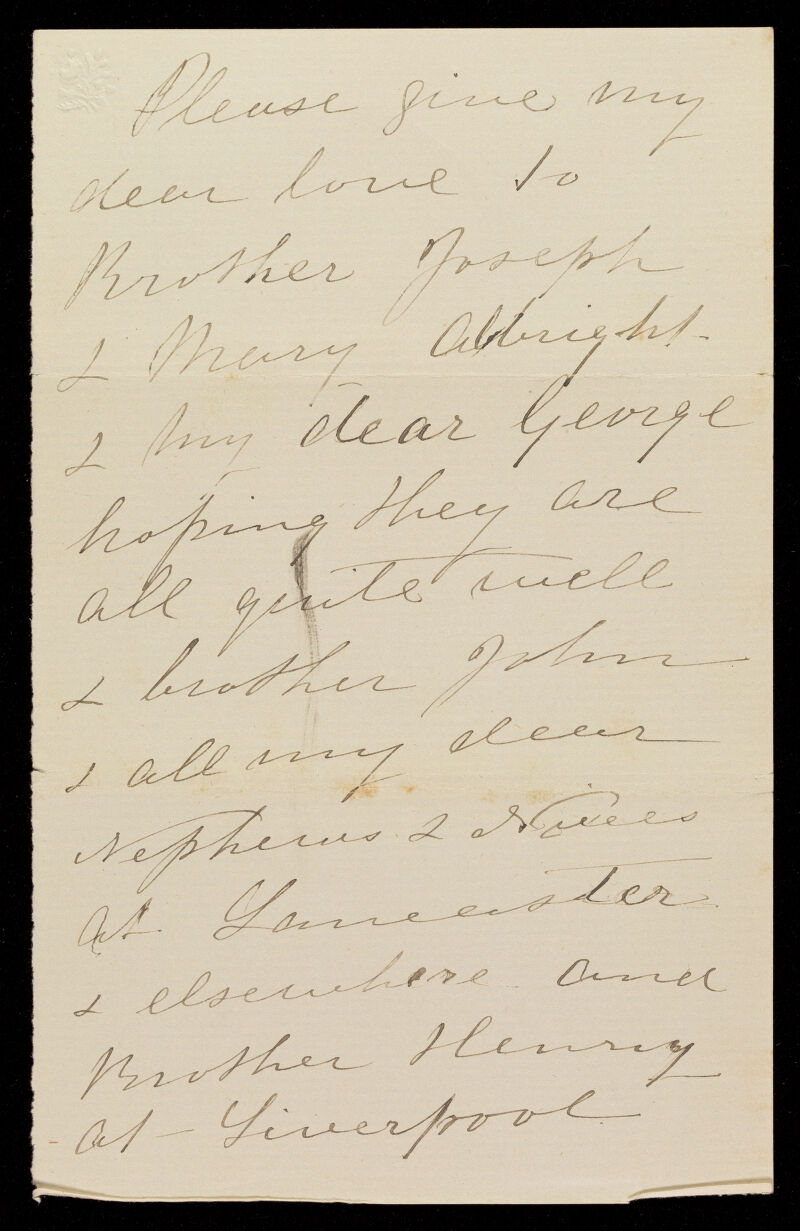 Please give my
dear love to
Brother Joseph
& Mary Albright
& my dear George
hoping they are
all quite well
& brother John
& all my dear
Nephews & Nieces
at Lancaster
& elsewhere and
Brother Henry
at Liverpool